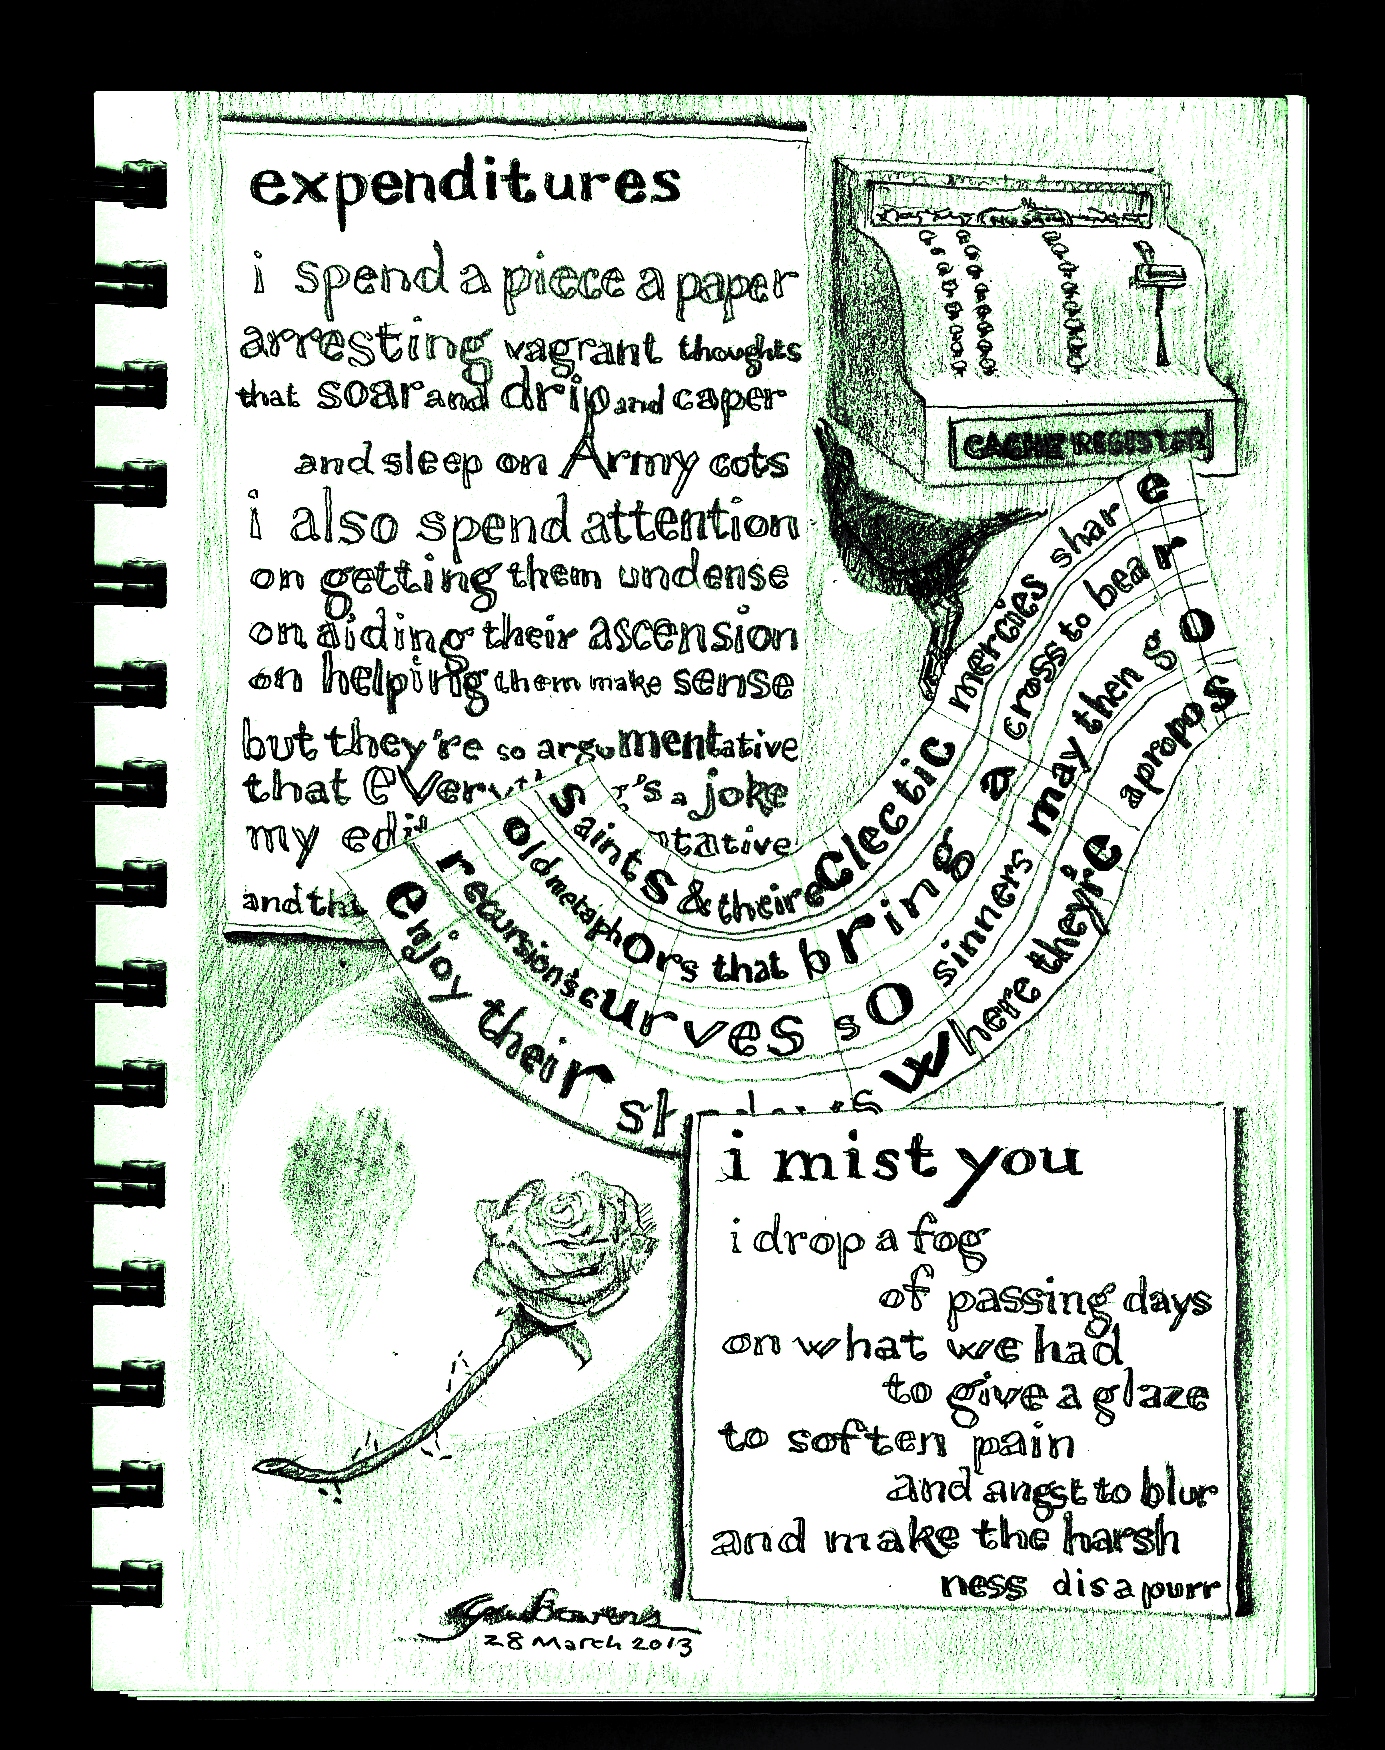 expenditures
i spend a piece a paper
arresting vagrant thoughts
that soar and drip and caper
and sleep on Army cots
i also spend attention
on getting them undense
on aiding their ascension
on helping them make sense
but they're so argumentative
that a joke
my
and
CACHE REGISTER
saints & their eclectic mercies share
old metaphors that bring a cross to bear
recursion's curves so sinners may then go
enjoy their where they're apropos
i mist you
i drop a fog
of passing days
on what we had
to give a glaze
to soften pain
and angst to blur
and make the harsh
ness disapurr
28 March 2013